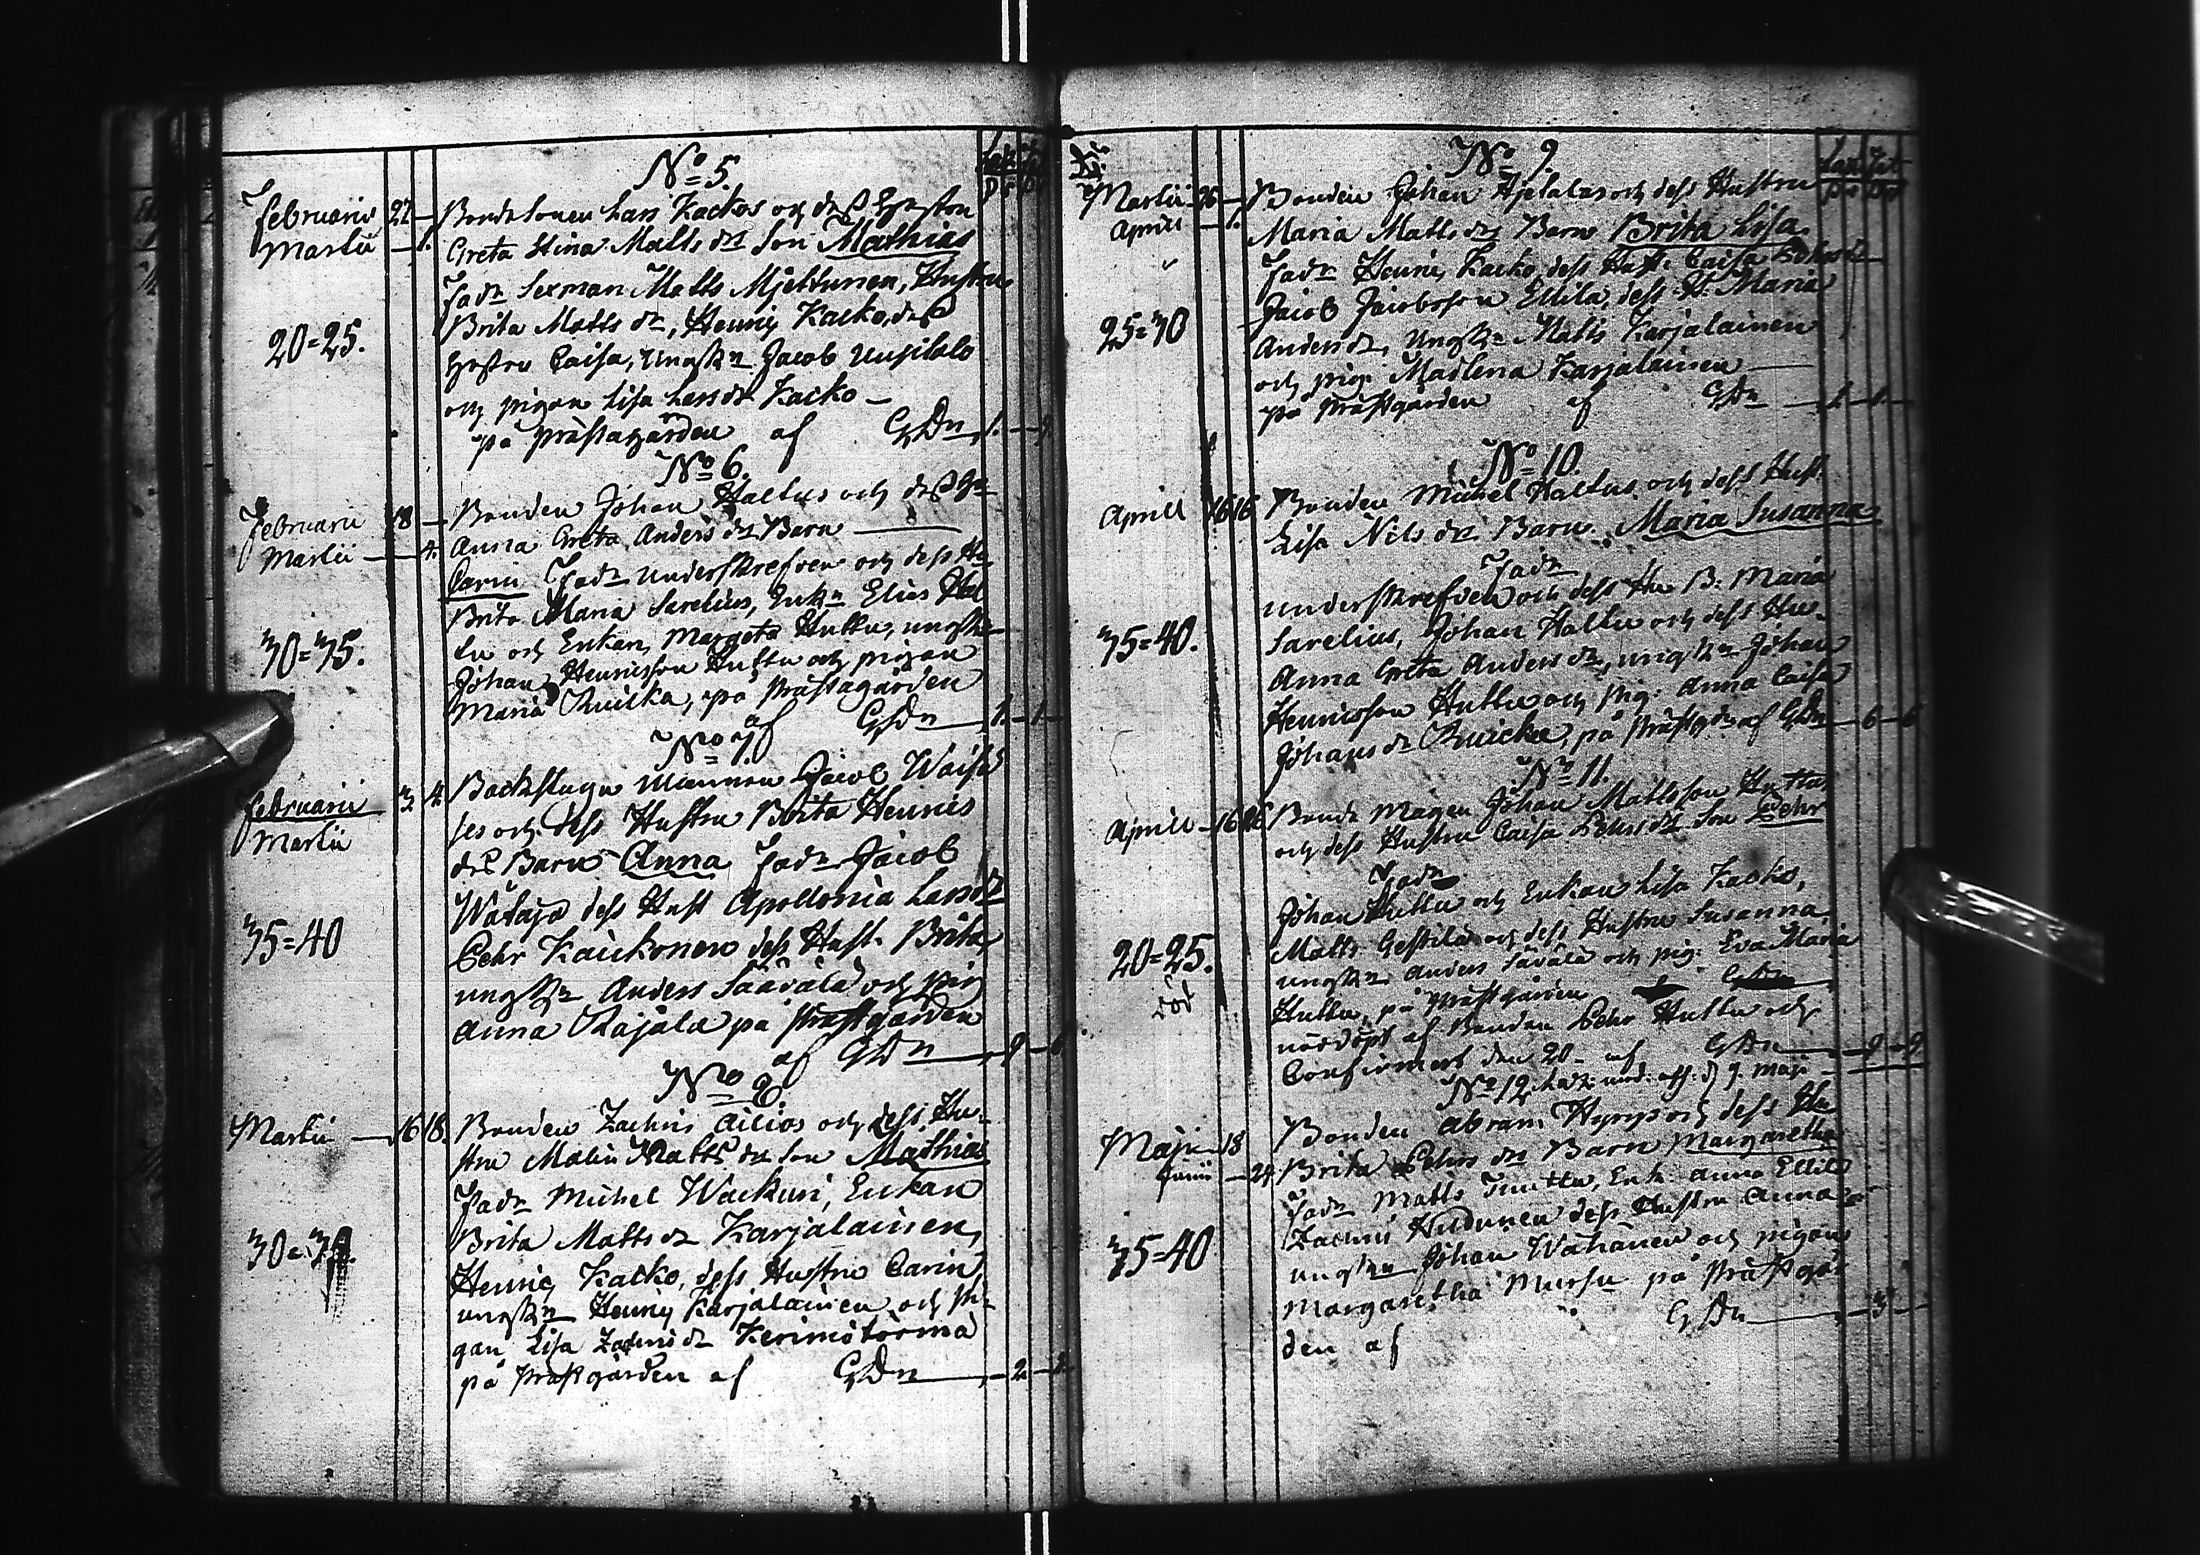 No 5.
Februarii 22 — Bondesonen Lars Kackos och dess Hustru
Martii — 1. Greta Stina Matts dr Son Mathias
Fadr Sexman Matts Mjettunen, Hustru
Brita Matts dr, Henric Kacko, dess
20=25. Hustru Caisa, Ungkn Jacob Uusitalo
och pigan Lisa Lars dr Kacko —
på prästagården af GDn 1. — 9
No 6.
Februarii 18 — Bonden Johan Haltus och dess Hu
Martii — 4. Anna Greta Anders dr Barn
Carin Fadr underskrefven och dess Hu
Brita Maria Sarelius, Enkn Elias Hal
tu och Enkan Margeta Huttu, ungkn
30=35. Johan Henricsson Huttu och pigan
Maria Ruikka, på prästagården
af GDn 1. — 1
No 7.
Februarii 3. 4. Backstugu mannen Jacob Waisa
Martii ses och dess Hustru Brita Henrics
dr Barn Anna Fadr Jacob
Wätäjä dess Hust Apollonia Lars dr
35=40 Pehr Kaickonen dess Hust. Brita,
ungkn Anders Säävälä och pig
Anna Rajala på prästgården
af GDn 9 — 6
No 8.
Martii — 16 18. Bonden Zachris Ailios och dess Hu-
stru Malin Matts dr Son Mathias
Fadr Michel Wackuri, Enkan
Brita Matts dr Karjalainen,
30= Henric Kacko, dess Hustru Carin
ungkn Henric Karjalainen och pi-
gan Lisa Zachris dr Kerimötörmä
på prästgården af GDn — 2 — 2
No 9.
Martii 26 — Bonden Johan Hjetalas och dess Hustru
Aprill — 1. Maria Matts dr Barn Brita Lisa.
Fadr Henric Kacko, dess Hust: Caisa
Jacob Jacobsson Ellilä, dess H. Maria
25=30 Anders dr, Ungkn Matts Karjalainen
och pig: Madlena Karjalainen —
på prästgården af GDn 1 — 1
No 10.
Aprill 16 16 Bonden Michel Haltus och dess Hust
Lisa Nils dr Barn Maria Susanna
Fadr
underskrefven och dess Hu B: Maria
35=40. Sarelius, Johan Haltu och dess Hu-
Anna Greta Anders dr, ungkn Johan
Henricsson Huttu och pig: Anna Caisa
Johans dr Ruicka, på prästgdn af GDn — 6 — 6
No 11.
Aprill — 16 16 Bonde mågen Johan Mattsson Huttus
och dess Hustru Caisa Pehrs dr Son Pehr
Fadr
Johan Huttu och Enkan Lisa Kacko,
Matts och dess Hustru Susanna,
20=25. ungkn Anders Sävälä och pig: Eva Maria
Huttu, på prästgården
nöddöpt af Bonden Pehr Huttu och
Confirmert den 20 — af GDn — 9 — 9
No 12
Maji — 18 Bonden Abram Hyrys och dess Hu
Junii — 24 Brita Pehrs dr Barn Margaretha
Fadr Matts Enk: Anna Ellilä
Zachris Hudunen dess Hustru Anna
35=40 ungkn Johan Wahanen och pigan
Margaretha Mursu på prästgår
den af GDn — 3 —